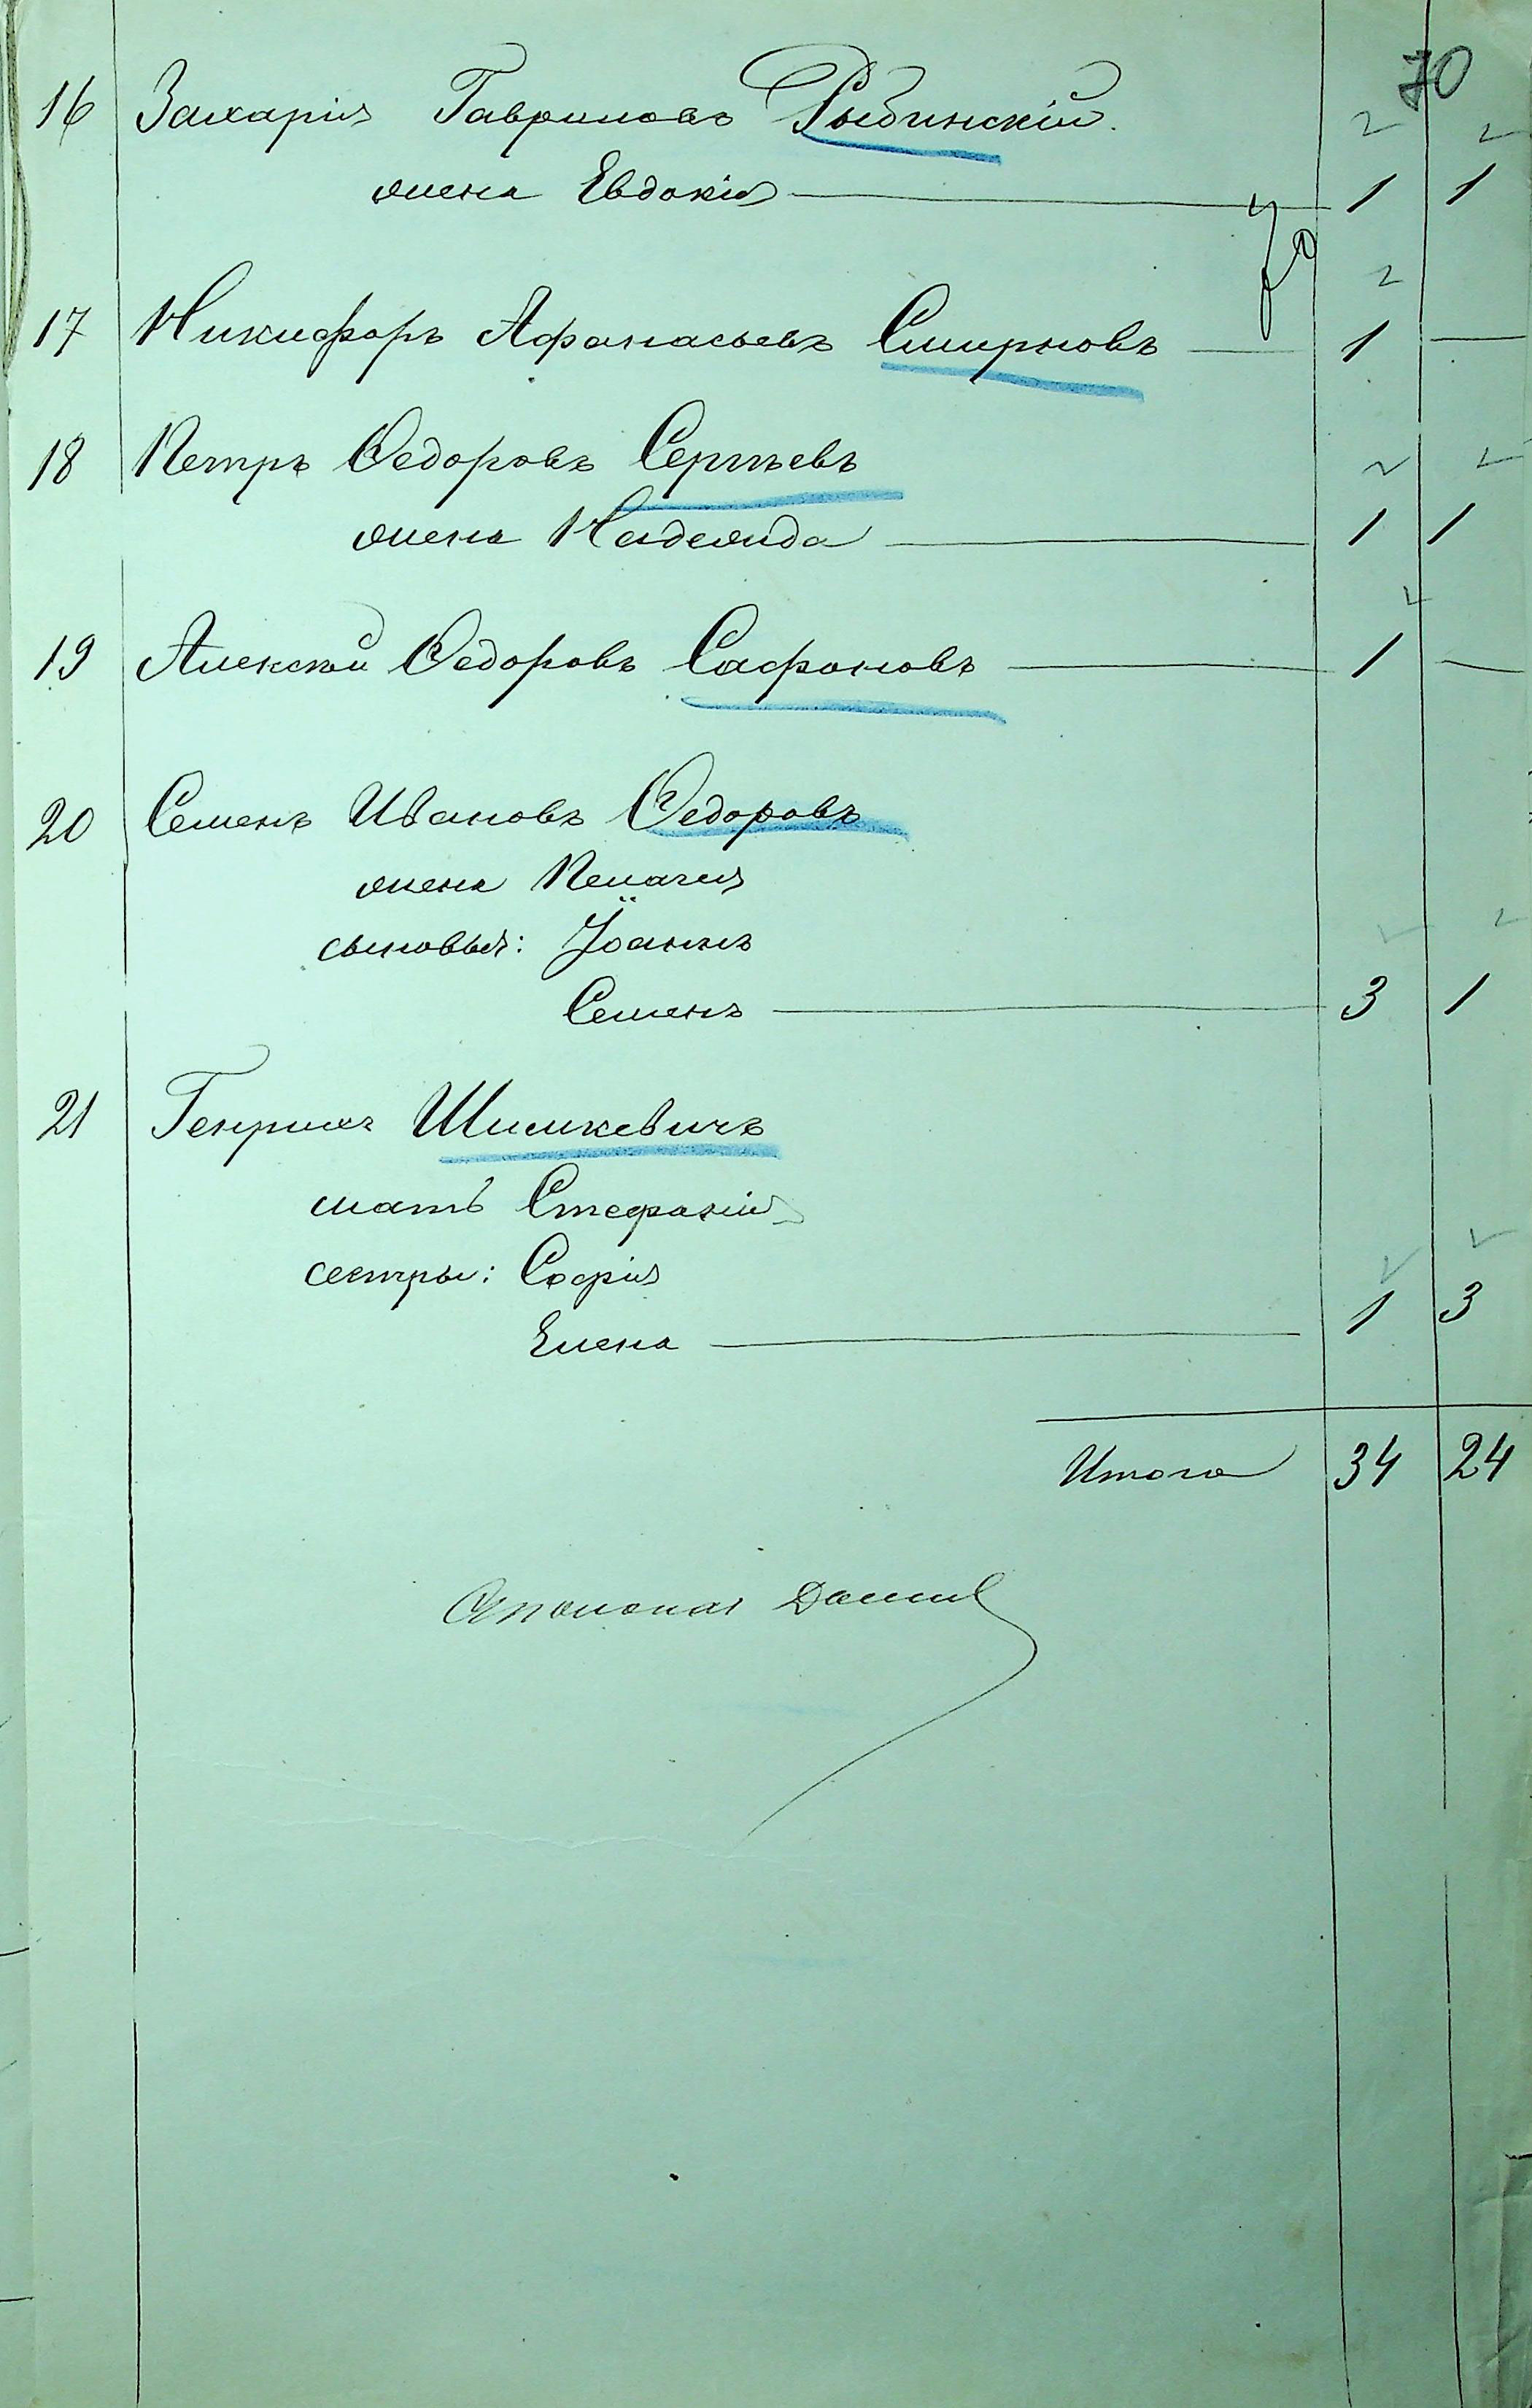 70
16 Захарія Гавриловъ Рыбинскій.
жена Евдокія 1 1
70
17 Никифоръ Афанасьевъ Смирновъ 1 —
18 Петръ Ѳедоровъ Сергѣевъ
жена Надежда 1 1
19 Алексѣй Ѳедоровъ Сафоновъ 1 —
20 Семенъ Ивановъ Ѳедоровъ
жена Пелагія
сыновья: Іоаннъ
Семенъ 3 1
21 Генрихъ Шимкевичъ
мать Стефанія
сестры: Софія
Елена 1 3
Итого 34 24